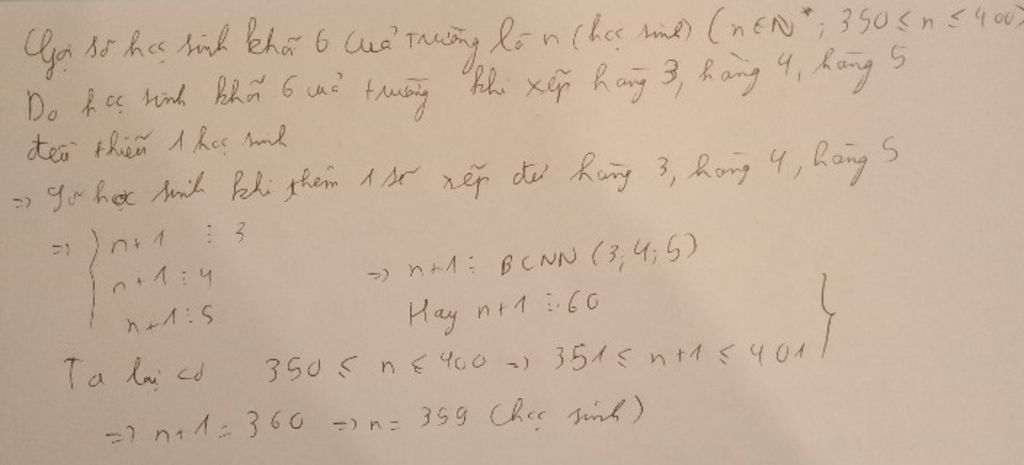 Gọi số học sinh khối 6 của trường là n (học sinh) (n ∈ N*; 350 ≤ n ≤ 400)
Do học sinh khối 6 của trường khi xếp hàng 3, hàng 4, hàng 5
đều thiếu 1 học sinh
=> Số học sinh khi thêm 1 sẽ xếp đủ hàng 3, hàng 4, hàng 5
=> { n+1 ⋮ 3
n+1 ⋮ 4 => n+1 ⋮ BCNN (3; 4; 5)
n+1 ⋮ 5 Hay n+1 ⋮ 60 }
Ta lại có 350 ≤ n ≤ 400 => 351 ≤ n+1 ≤ 401
=> n+1 = 360 => n = 359 (học sinh)